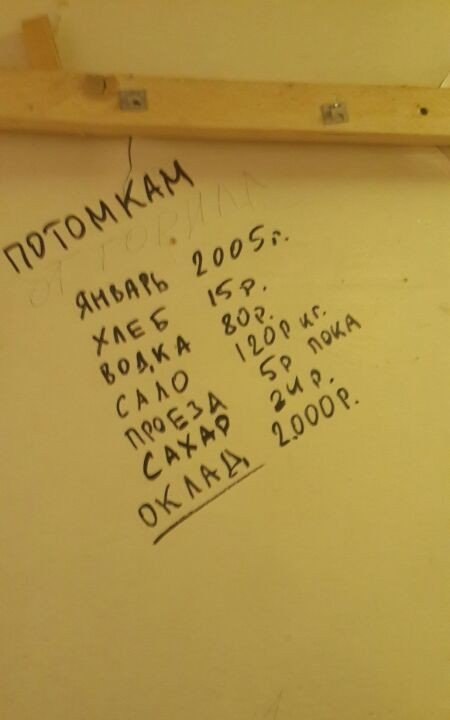 ПОТОМКАМ
ОТ ГОРИЛА
ЯНВАРЬ 2005г.
ХЛЕБ 15р.
ВОДКА 80р.
САЛО 120р кг.
ПРОЕЗД 5р ПОКА
САХАР 24р.
ОКЛАД 2.000р.